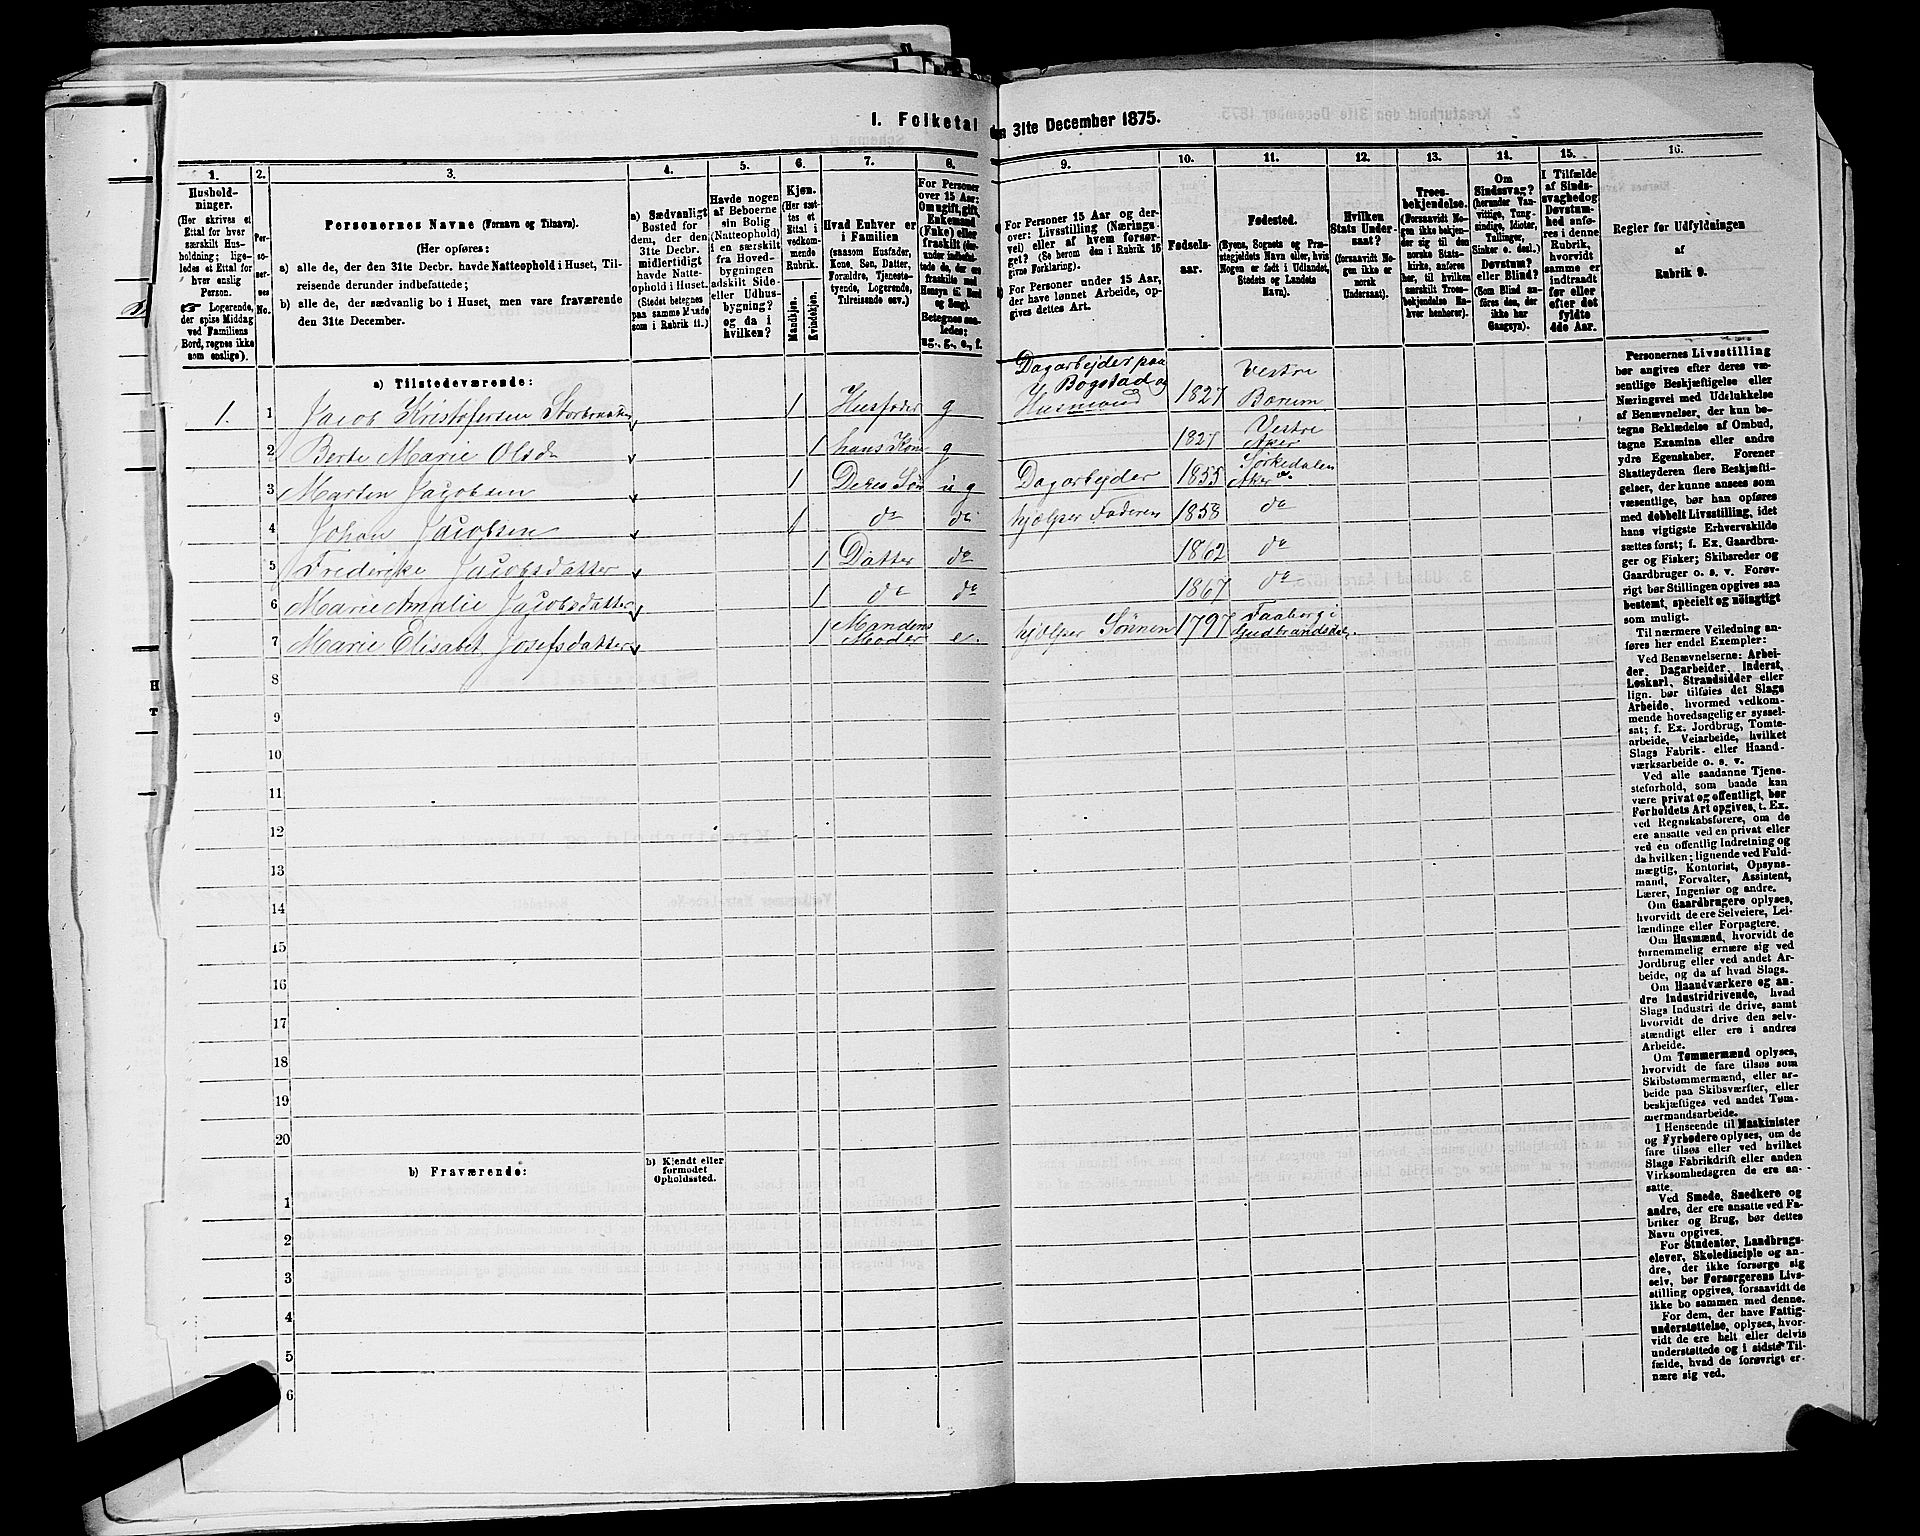 I. Folketal den 31te December 1875.
1. 2. 3. 4. 5. 6. 7. 8. 9. 10. 11. 12. 13. 14. 15. 16.
Hushold-
ninger.
(Her skrives et
Ettal for hver
særskilt Hus-
holdning; lige-
ledes et Ettal for
hver enslig
Person.
☛ Logerende,
der spise Middag
ved Familiens
Bord, regnes ikke
som enslige).
Per-
so-
ner-
nes
No.
Personernes Navne (Fornavn og Tilnavn).
(Her opføres:
a) alle de, der den 31te Decbr. havde Natteophold i Huset, Til-
reisende derunder indbefattede;
b) alle de, der sædvanlig bo i Huset, men vare fraværende
den 31te December.
a) Sædvanligt
Bosted for
dem, der den
31te Decbr.
midlertidigt
havde Natte-
ophold i Huset.
(Stedet betegnes
paa samme Maade
som i Rubrik 11.)
Havde nogen
af Beboerne
sin Bolig
(Natteophold)
i en særskilt
fra Hoved-
bygningen
adskilt Side-
eller Udhus-
bygning?
og da i
hvilken?
Kjøn.
(Her sæt-
tes et
Ettal i
vedkom-
mende
Rubrik.
Mandkjøn.
Kvindekjøn.
Hvad Enhver er
i Familien
(saasom Husfader,
Kone, Søn, Datter,
Forældre, Tjeneste-
tyende, Logerende,
Tilreisende osv.)
For Personer
over 15 Aar:
Om ugift, gift,
Enkemand
(Enke) eller
fraskilt (der-
under indbefat-
tede de, der ere
fraskilte med
Hensyn til Bord
og Seng).
Betegnes saa-
ledes:
ug., g., e., f.
For Personer 15 Aar og der-
over: Livsstilling (Nærings-
vei) eller af hvem forsør-
get? (Se herom den i Rubrik 16
givne Forklaring).
For Personer under 15 Aar,
der have lønnet Arbeide, op-
gives dettes Art.
Fødsels-
aar.
Fødested.
(Byens, Sognets og Præ-
stegjeldets Navn eller, hvis
Nogen er født i Udlandet,
Stedets og Landets
Navn).
Hvilken
Stats Under-
saat?
(forsaavidt No-
gen ikke er
norsk
Undersaat).
Troes-
bekjendelse.
(Forsaavidt No-
gen ikke bekjen-
der sig til den
norske Stats-
kirke, anføres
her, til hvilken
særskilt Troes-
bekjendelse En-
hver henhører).
Om
Sindssvag?
(herunder Van-
vittige, Tung-
sindige, Idioter,
Tullinger,
Sinker o. desl.)
Døvstum?
eller Blind?
(Som Blind an-
føres den, der
ikke har
Gangsyn).
I Tilfælde
af Sinds-
svaghed og
Døvstum-
hed anfø-
res i denne
Rubrik,
hvorvidt
samme er
indtraadt
før eller
efter det
fyldte
4de Aar.
Regler før Udfyldningen
af
Rubrik 9.
a) Tilstedeværende:
1. 1 Jacob Kristofersen Storbraaten 1 Husfader g Dagarbejder paa Bogstad og Husmand 1827 Vestre Bærum
2 Berte Marie Olsd 1 hans Kone g 1827 Vestre Aker
3 Marten Jacobsen 1 Deres Søn ug Dagarbejder 1855 Sørkedalen Aker
4 Johan Jacobsen 1 do do hjælper Faderen 1858 do
5 Frederikke Jacobsdatter 1 Datter do 1862 do
6 Marie Amalie Jacobsdatter 1 do do 1867 do
7 Marie Elisabet Josefsdatter 1 Mandens Moder e. hjælper Sønnen 1797 Faaberg i Gudbrandsdal.
8
9
10
11
12
13
14
15
16
17
18
19
20
b) Fraværende:
b) Kjendt eller
formodet
Opholdssted.
1
2
3
4
5
6
Personernes Livsstilling
bør angives efter deres væ-
sentlige Beskjæftigelse eller
Næringsvei med Udelukkelse
af Benævnelser, der kun be-
tegne Beklædelse af Ombud,
tagne Examina eller andre
ydre Egenskaber. Forener
Skatteyderen flere Beskjæfti-
gelser, der kunne ansees som
væsentlige, bør han opføres
med dobbelt Livsstilling, idet
hans vigtigste Erhvervskilde
sættes først; f. Ex. Gaardbru-
ger og Fisker; Skibsreder og
Gaardbruger o. s. v. Forøv-
rigt bør Stillingen opgives saa
bestemt, specielt og nøiagtigt
som muligt.
Til nærmere Veiledning an-
føres her endel Exempler:
Ved Benævnelserne: Arbei-
der, Dagarbeider, Inderst,
Løskarl, Strandsidder eller
lign. bør tilføies det Slags
Arbeide, hvormed vedkom-
mende hovedsagelig er syssel-
sat; f. Ex. Jordbrug, Tomte-
arbeide, Veiarbeide, hvilket
Slags Fabrik- eller Haand-
værksarbeide o. s. v.
Ved alle saadanne Tjene-
steforhold, som baade kan
være privat og offentligt, bør
Forholdets Art opgives, t. Ex.
ved Regnskabsførere, om de
ere ansatte ved en privat eller
ved en offentlig Indretning og
da hvilken; lignende ved Fuld-
mægtig, Kontorist, Opsyns-
mand, Forvalter, Assistent,
Lærer, Ingeniør og andre.
Om Gaardbrugere oplyses,
hvorvidt de ere Selveiere, Lei-
lændinge eller Forpagtere.
Om Husmænd, hvorvidt de
fornemmelig ernære sig ved
Jordbrug eller ved andet Ar-
beide, og da af hvad Slags.
Om Haandværkere og an-
dre Industridrivende, hvad
Slags Industri de drive, samt
hvorvidt de drive den selv-
stændigt eller ere i andres
Arbeide.
Om Tømmermænd oplyses,
hvorvidt de fare tilsøs som
Skibstømmermænd, eller ar-
beide paa Skibsværfter, eller
beskjæftiges ved andet Tøm-
mermandsarbeide.
I Henseende til Maskinister
og Fyrbødere oplyses, om de
fare tilsøs eller ved hvilket
Slags Fabrikdrift eller anden
Virksomhedsgren de ere an-
satte.
Ved Smede, Snedkere og
andre, der ere ansatte ved Fa-
briker og Brug, bør dettes
Navn opgives.
For Studenter, Landbrugs-
elever, Skoledisciple og an-
dre, der ikke forsørge sig
selv, bør Forsørgerens Livs-
stilling opgives, forsaavidt de
ikke bo sammen med denne.
For dem, der have Fattig-
understøttelse, oplyses, hvor-
vidt de ere helt eller delvis
understøttede og i sidste Til-
fælde, hvad de forøvrigt er-
nære sig ved.